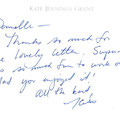 KATE JENNINGS GRANT
Thanks so much for
the lovely letter.
so much fun to work on
glad you enjoyed it!
All the best,
Kate